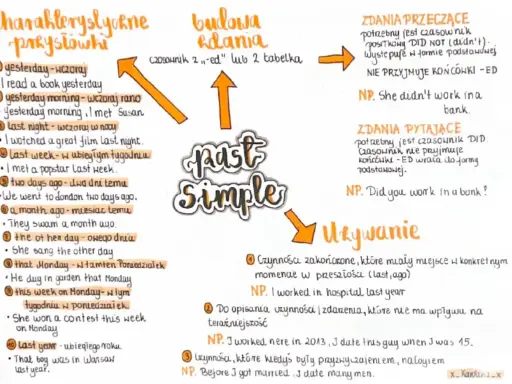 charakterystyczne
przysłówki
① yesterday - wczoraj
I read a book yesterday
② yesterday morning - wczoraj rano
yesterday morning, I met Susan
③ last night - wczoraj w nocy
• I watched a great film last night.
④ last week - w ubiegłym tygodniu
• I met a popstar last week.
⑤ two days ago - dwa dni temu
• We went to london two days ago.
⑥ a month ago - miesiąc temu
• They swam a month ago.
⑦ the other day - owego dnia
• She sang the other day
⑧ that Monday - w tamten Poniedziałek
• He dug in garden that Monday
⑨ this week on Monday - w tym
tygodniu w poniedziałek
• She won a contest this week
on Monday
⑩ last year - ubiegłego roku.
• That boy was in Warsaw
last year.
budowa
zdania
czasownik z „-ed" lub 2 tabelka
past
simple
ZDANIA PRZECZĄCE
potrzebny jest czasownik
posiłkowy DID NOT (didn't).
Występuje w formie podstawowej
NIE PRZYJMUJE KOŃCÓWKI -ED
NP. She didn't work in a
bank.
ZDANIA PYTAJĄCE
potrzebny jest czasownik DID
Czasownik nie przyjmuje
końcówki -ED wraca do formy
podstawowej.
NP. Did you work in a bank?
Używanie
① Czynności zakończone, które miały miejsce w konkretnym
momencie w przeszłości (last, ago)
NP. I worked in hospital last year
② Do opisania czynności i zdarzenia, które nie ma wpływu na
teraźniejszość
NP. I worked here in 2013, I date this guy when I was 15.
③ Czynności, które kiedyś były przyzwyczajeniem, nałogiem
NP. Before I got married, I date many men.
x_Karolina_x